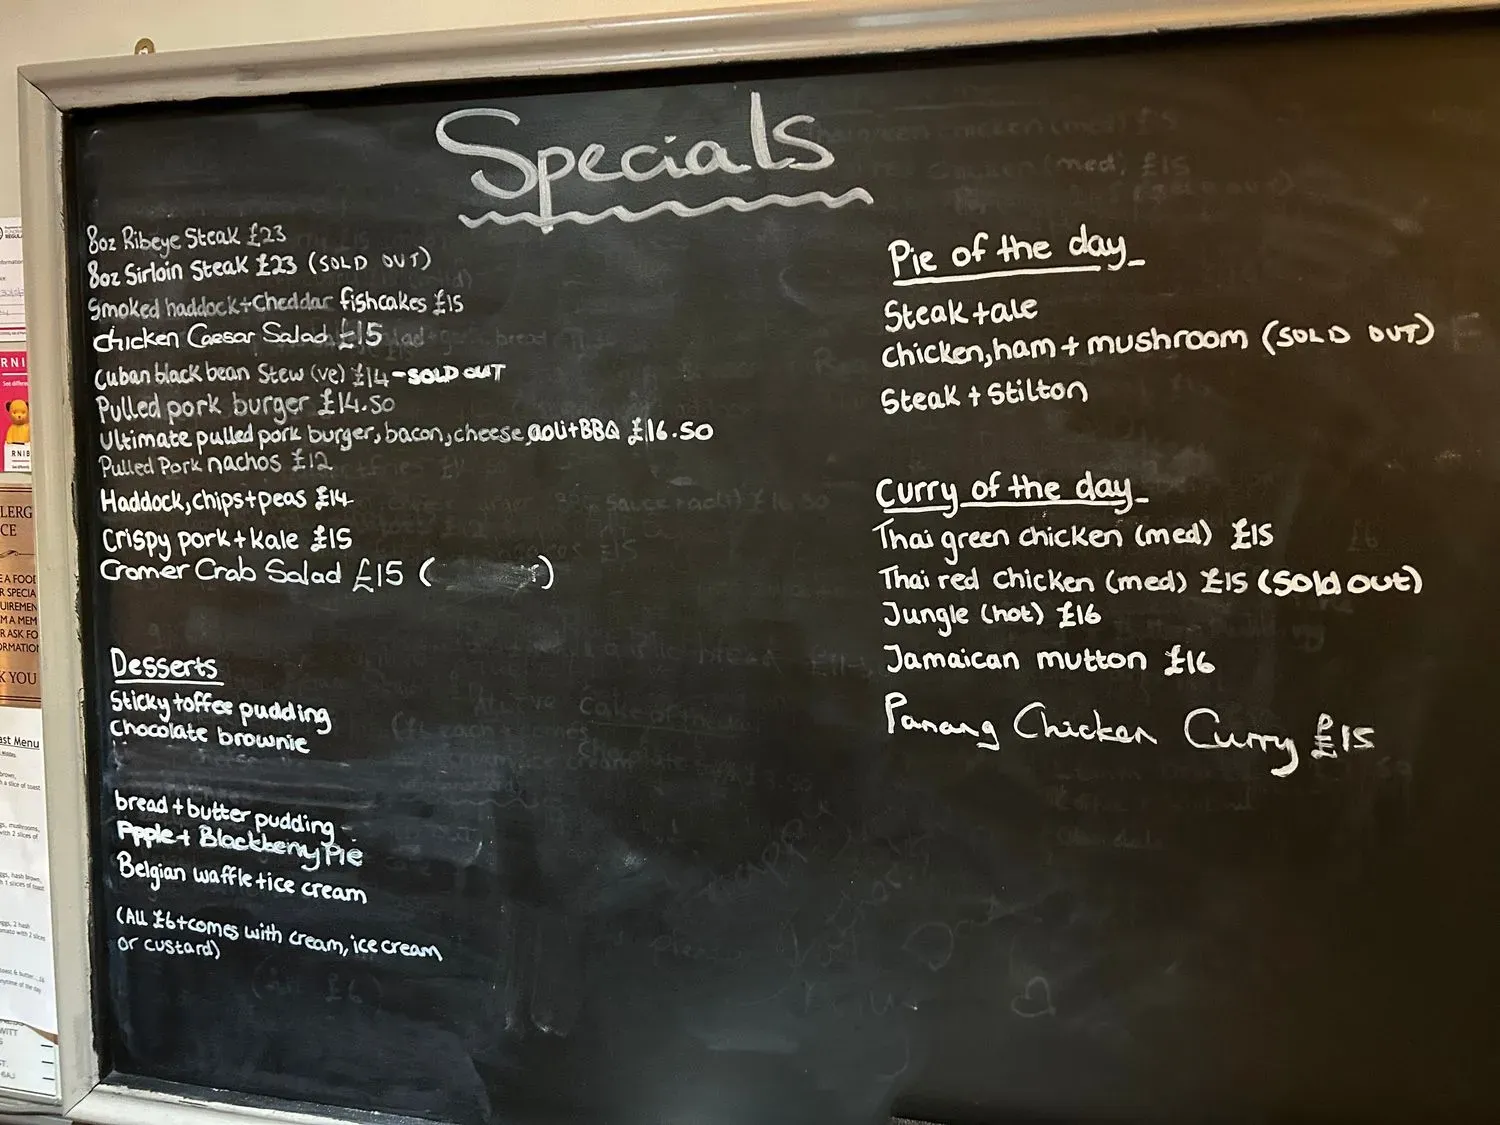 Specials
8oz Ribeye Steak £23
8oz Sirloin Steak £23 (SOLD OUT)
Smoked haddock+Cheddar fishcakes £15
chicken Caesar Salad £15
Cuban black bean Stew (ve) £14-SOLD OUT
Pulled pork burger £14.50
Ultimate pulled pork burger, bacon, cheese, aoli+BBQ £16.50
Pulled Pork nachos £12
Haddock, chips+peas £14
Crispy pork+kale £15
Cromer Crab Salad £15 ( )
Desserts
Sticky toffee pudding
Chocolate brownie
bread+butter pudding
Apple+ Blackberry Pie
Belgian waffle+ice cream
(All £6+comes with cream, ice cream
or custard)
Pie of the day
Steak+ale
chicken, ham + mushroom (SOLD OUT)
Steak + Stilton
Curry of the day
Thai green chicken (med) £15
Thai red chicken (med) £15 (Sold out)
Jungle (hot) £16
Jamaican mutton £16
Panang Chicken Curry £15
RNIB
YOU
Menu